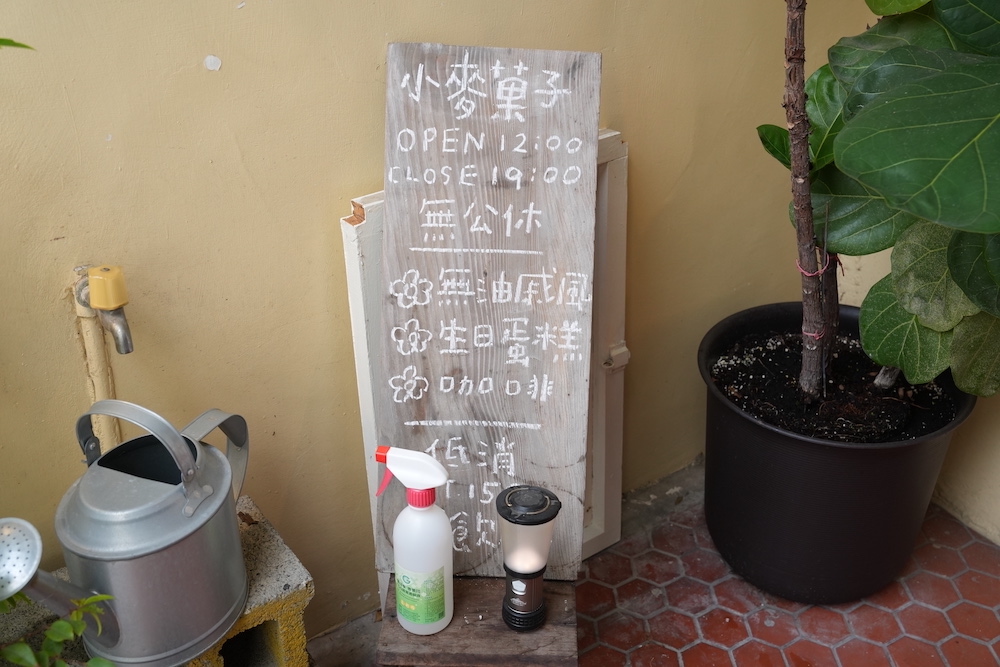 小麥菓子
OPEN 12:00
CLOSE 19:00
無公休
無油戚風
生日蛋糕
咖啡
低消